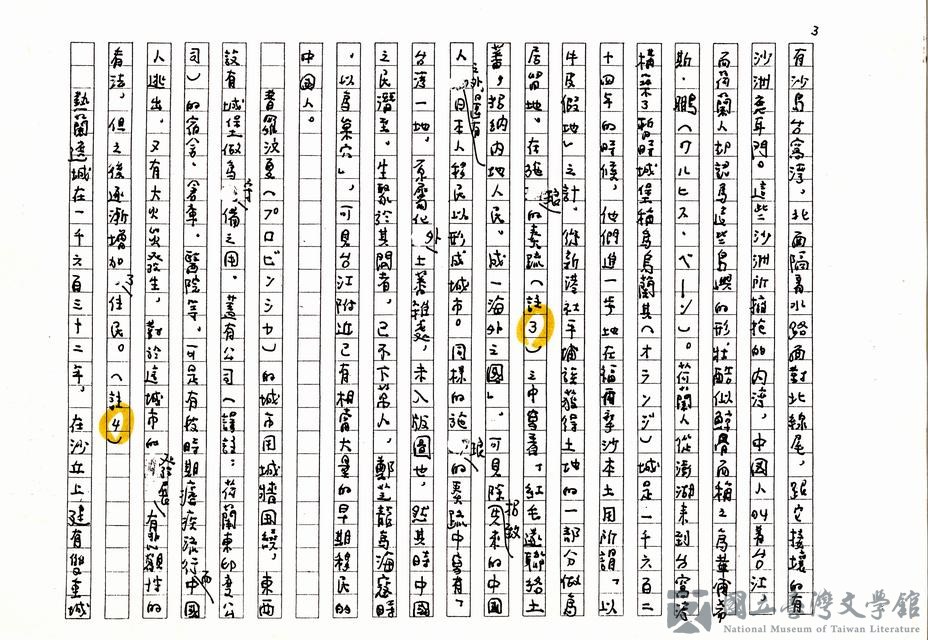 3
有沙島台窩灣，北面隔着水路面對北線尾，跟它接壤的有
沙洲鹿耳門。這些沙洲所擁抱的內湾，中國人叫着台江，
而荷蘭人却認為這些島嶼的形狀酷似鯨骨而稱之為華爾希
斯・鵬（ワルヒス・ベーン）。荷蘭人從澎湖來到台窩湾
構築了暫時城堡稱為烏蘭其（オランジ）城是一千六百二
十四年的時候，他們進一步地在福爾摩沙本土用所謂「以
牛皮假地」之計，從新港社平埔族獲得土地的一部分做為
居留地。在施琅的奏疏（註3）之中寫着「紅毛遂聯絡土
蕃，招納內地人民。成一海外之國」。可見除開來的中國
人之外還有日本人移民以形成城市。同樣的施琅的奏疏中寫有，
台湾一地。原屬化外土蕃雜處，未入版圖也，然其時中國
之民潛至。生聚於其間者，已不下萬人，鄭芝龍為海寇時
，以為巢穴」，可見台江附近已有相當大量的早期移民的
中國人。
普羅汶夏（プロビンシヤ）的城市用城牆圍繞，東西
設有城堡做為守備之用。蓋有公司（譯註：荷蘭東印度公
司）的宿舍、倉庫、醫院等。可是有技時期瘧疾流行而中國
人逃出，又有大火災發生，對於這城市的發展有
有法，但之後逐漸增加了住民。（註4）
熱蘭遮城在一千六百三十二年，在沙丘上，建有雙重城
國立臺灣文學館
National Museum of Taiwan Literature